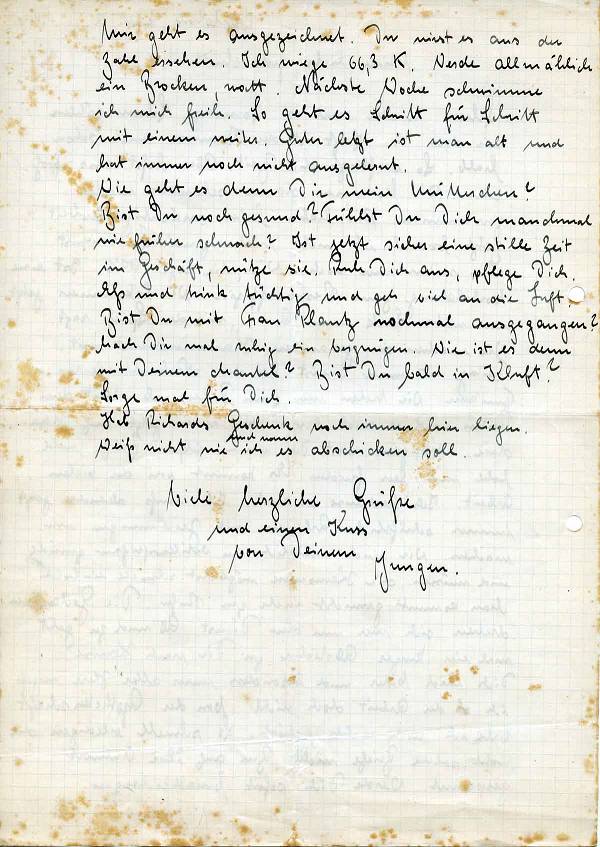 Mir geht es ausgezeichnet. Du wirst es aus der
Zahl ersehen. Ich wiege 66,3 K. Werde allmählich
ein Brocken, watt. Nächste Woche schwimme
ich mich frei. So geht es Schritt für Schritt
mit einem weiter. Guter letzt ist man alt und
hat immer noch nicht ausgelernt.
Wie geht es denn Dir mein Mütterchen?
Bist Du noch gesund? Fühlst Du Dich manchmal
wie früher schwach? Ist jetzt sicher eine stille Zeit
im Geschäft, nütze sie. Ruh Dich aus, pflege Dich.
Eß und trink tüchtig und geh viel an die Luft.
Bist Du mit Frau Plantz nochmal ausgegangen?
Mach Dir mal ruhig ein vergnügen. Wie ist es denn
mit Deinem Mantel? Bist Du bald in Kluft?
Sorge mal für Dich.
Hab Richards Geschenk noch immer hier liegen.
Weiß nicht wie und wann ich es abschicken soll.
Viele herzliche Grüße
und einen Kuss
von Deinem
Jungen.